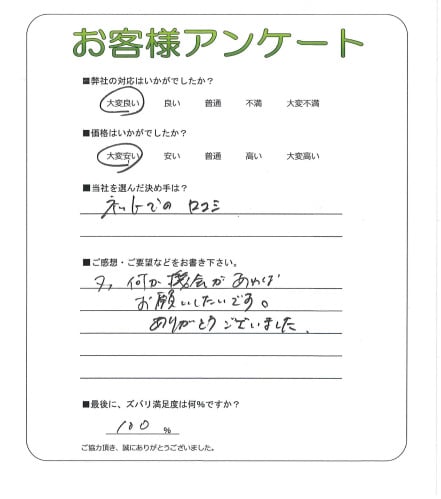 お客様アンケート
■弊社の対応はいかがでしたか?
大変良い 良い 普通 不満 大変不満
■価格はいかがでしたか?
大変安い 安い 普通 高い 大変高い
■当社を選んだ決め手は?
ネットでの 口コミ
■ご感想・ご要望などをお書き下さい。
又、何か機会があれば
お願いしたいです。
ありがとうございました.
■最後に、ズバリ満足度は何%ですか?
100 %
ご協力頂き、誠にありがとうございました。